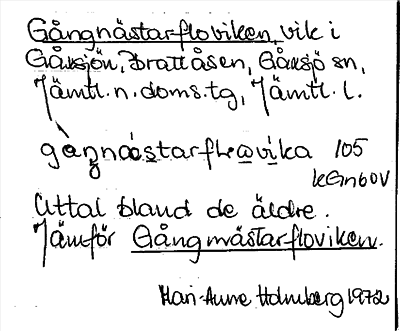 Gångnästarfloviken, vik i
Gåxsjön, Brattåsen, Gåxsjö sn,
Jämtl. n. doms.tg, Jämtl. l.
105
Uttal bland de äldre.
Jämför Gångmästarfloviken.
Mari-Anne Holmberg 1972